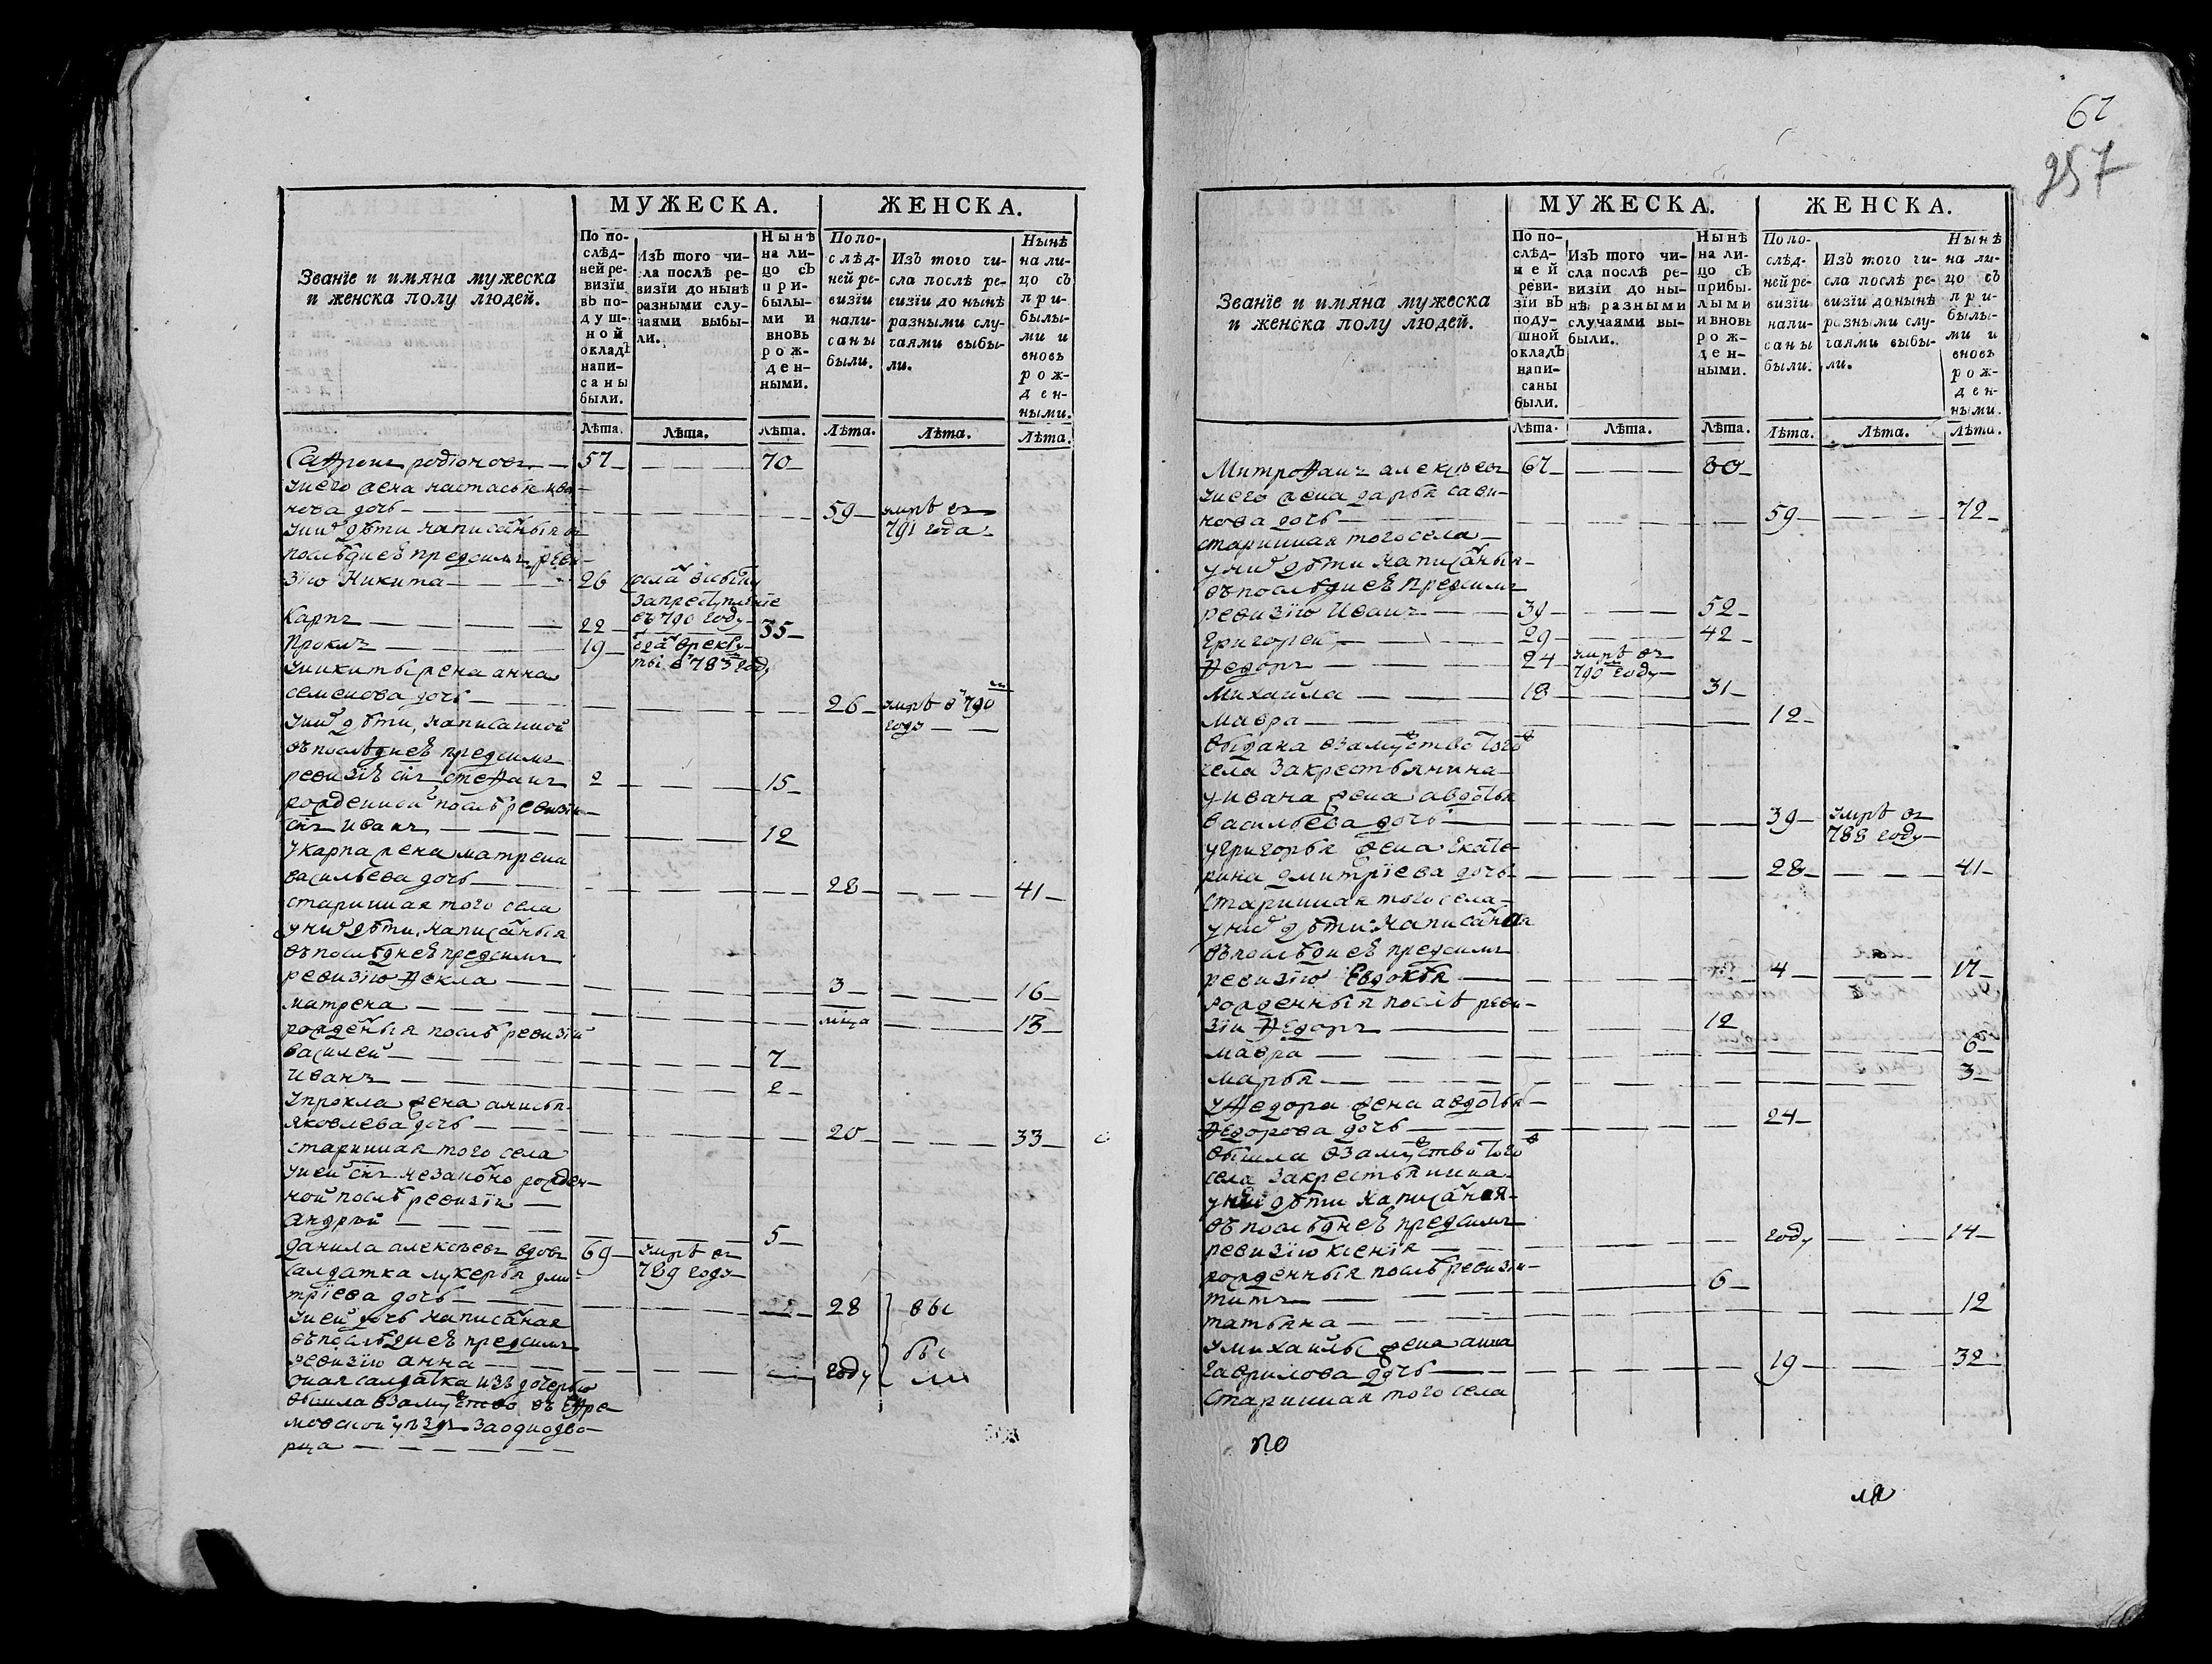 МУЖЕСКА. ЖЕНСКА.
Званїе и имяна мужеска
и женска полу людей.
По по-
слѣд-
ней ре-
визїи
въ по-
душ-
ной
окладъ
напи-
саны
были.
Изъ того чи-
сла послѣ ре-
визїи до нынѣ
разными слу-
чаями выбы-
ли.
Нынѣ
на ли-
цо съ
при-
былы-
ми и
вновь
рож-
ден-
ными.
По по-
слѣд-
ней ре-
визїи
напи-
саны
были.
Изъ того чи-
сла послѣ ре-
визїи до нынѣ
разными слу-
чаями выбы-
ли.
Нынѣ
на ли-
цо съ
при-
былы-
ми и
вновь
рож-
ден-
ными.
Лѣта. Лѣта. Лѣта. Лѣта. Лѣта. Лѣта.
Сафронъ родїоновъ 57 70
у него жена настасья ива-
нова дочь 59 умрѣ въ 791 года
у них дѣти написаныя въ
последнеѣ пред симъ реви-
зїю Никита 26 въ 790 году
Карпъ 22 35
Проклъ 19 году
у никиты жена анна
семенова дочь 26 умрѣ в 790 году
у них дѣти, написанной
въ последнеѣ пред симъ
ревизїѣ снъ стефанъ 2 15
рожденной послѣ ревизїи
снъ иванъ 12
у карпа жена матрена
васильева дочь 28 41
старинная того села
у них дѣти, написаныя
въ последнеѣ пред симъ
ревизїю Фекла 3 16
матрена мца 13
рожденыя послѣ ревизїи
василей 7
иванъ 2
у прокла жена анисья
яковлева дочь 20 33
старинная того села
у ней снъ незаконо рожден-
ной послѣ ревизїи
андрей 5
данила алексѣевъ вдовъ 69 умрѣ въ 789 году
салдатка лукерья дми-
трїева дочь 28 вы
у ней дочь написаная
въ последнеѣ пред симъ бы
ревизїю анна году ли
оная салдатка изъ дочерью
вышла взамужство въ Ефре-
мовской уѣздъ за однодво-
рца
62
257
МУЖЕСКА. ЖЕНСКА.
Званїе и имяна мужеска
и женска полу людей.
По по-
слѣд-
ней
реви-
зїи въ
поду-
шной
окладъ
напи-
саны
были.
Изъ того чи-
сла послѣ ре-
визїи до ны-
нѣ разными
случаями вы-
были.
Нынѣ
на ли-
цо съ
прибы-
лыми
и вновь
рож-
ден-
ными.
По по-
слѣд-
ней ре-
визїи
напи-
саны
были.
Изъ того чи-
сла послѣ ре-
визїи до нынѣ
разными слу-
чаями выбы-
ли.
Нынѣ
на ли-
цо съ
при-
былы-
ми и
вновь
рож-
ден-
ными.
Лѣта. Лѣта. Лѣта. Лѣта. Лѣта. Лѣта.
Митрофанъ алексѣевъ 67 80
у него жена дарья сави-
нова дочь 59 72
старинная того села
у них дѣти написаныя
въ последнеѣ пред симъ
ревизїю Иванъ 39 52
Григорей 29 42
Федоръ 24 умрѣ въ 790 году
Михайла 18 31
мавра 12
выдана взамужство того
села за крестьянина
у ивана жена авдотья
васильева дочь 39 умрѣ въ 788 году
у григорья жена Екате-
рина дмитрїева дочь 28 41
старинная того села
у них дѣти написаная
въ последнеѣ пред симъ
ревизїю Евдокья 4 17
рожденныя послѣ реви-
зїи Федоръ 12
мавра 6
марья 3
у Федора жена авдотья
Федорова дочь 24
вышла взамужство того
села за крестьянина
у ней дѣти написаная
въ последнеѣ пред симъ
ревизїю ксенїя году 14
рожденныя послѣ ревизїи
титъ 6
татьяна 12
у михайлы жена анна
гаврилова дочь 19 32
старинная того села
по
ля